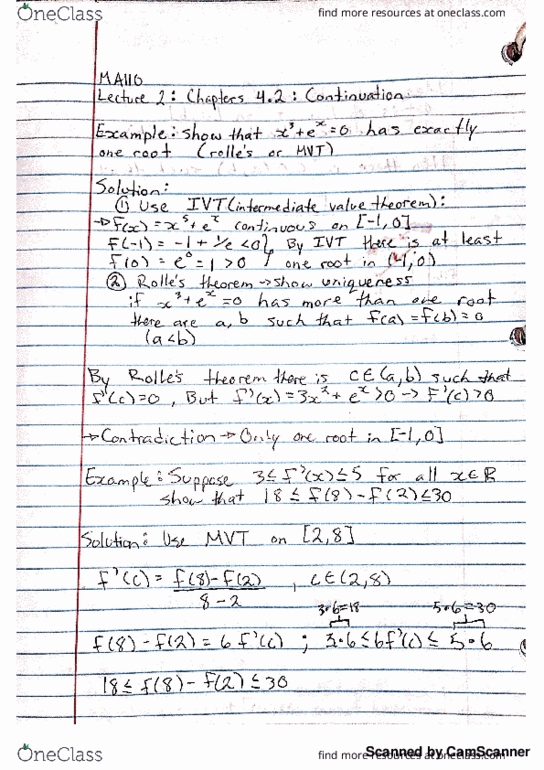 OneClass
find more resources at oneclass.com
MA110
Lecture 2: Chapters 4.2: Continuation
Example: Show that x³+eˣ=0 has exactly
one root (rolle's or MVT)
Solution:
① Use IVT (intermediate value theorem):
→ f(x)=x³+eˣ continuous on [-1,0]
f(-1) = -1 + 1/e <0 } By IVT there is at least
f(0) = e⁰ = 1 >0 } one root in (-1,0)
② Rolle's theorem → show uniqueness
if x³+eˣ=0 has more than one root
there are a, b such that f(a)=f(b)=0
(a<b)
By Rolle's theorem there is c∈(a,b) such that
f'(c)=0, But f'(x)=3x²+eˣ>0 → f'(c)>0
→ Contradiction → Only one root in [-1,0]
Example: Suppose 3≤f'(x)≤5 for all x∈R
show that 18≤f(8)-f(2)≤30
Solution: Use MVT on [2,8]
f'(c) = f(8)-f(2) , c∈(2,8)
8-2
3·6=18 5·6=30
f(8)-f(2)=6f'(c) ; 3·6≤6f'(c)≤5·6
18≤f(8)-f(2)≤30
OneClass
find more resources at oneclass.com
Scanned by CamScanner